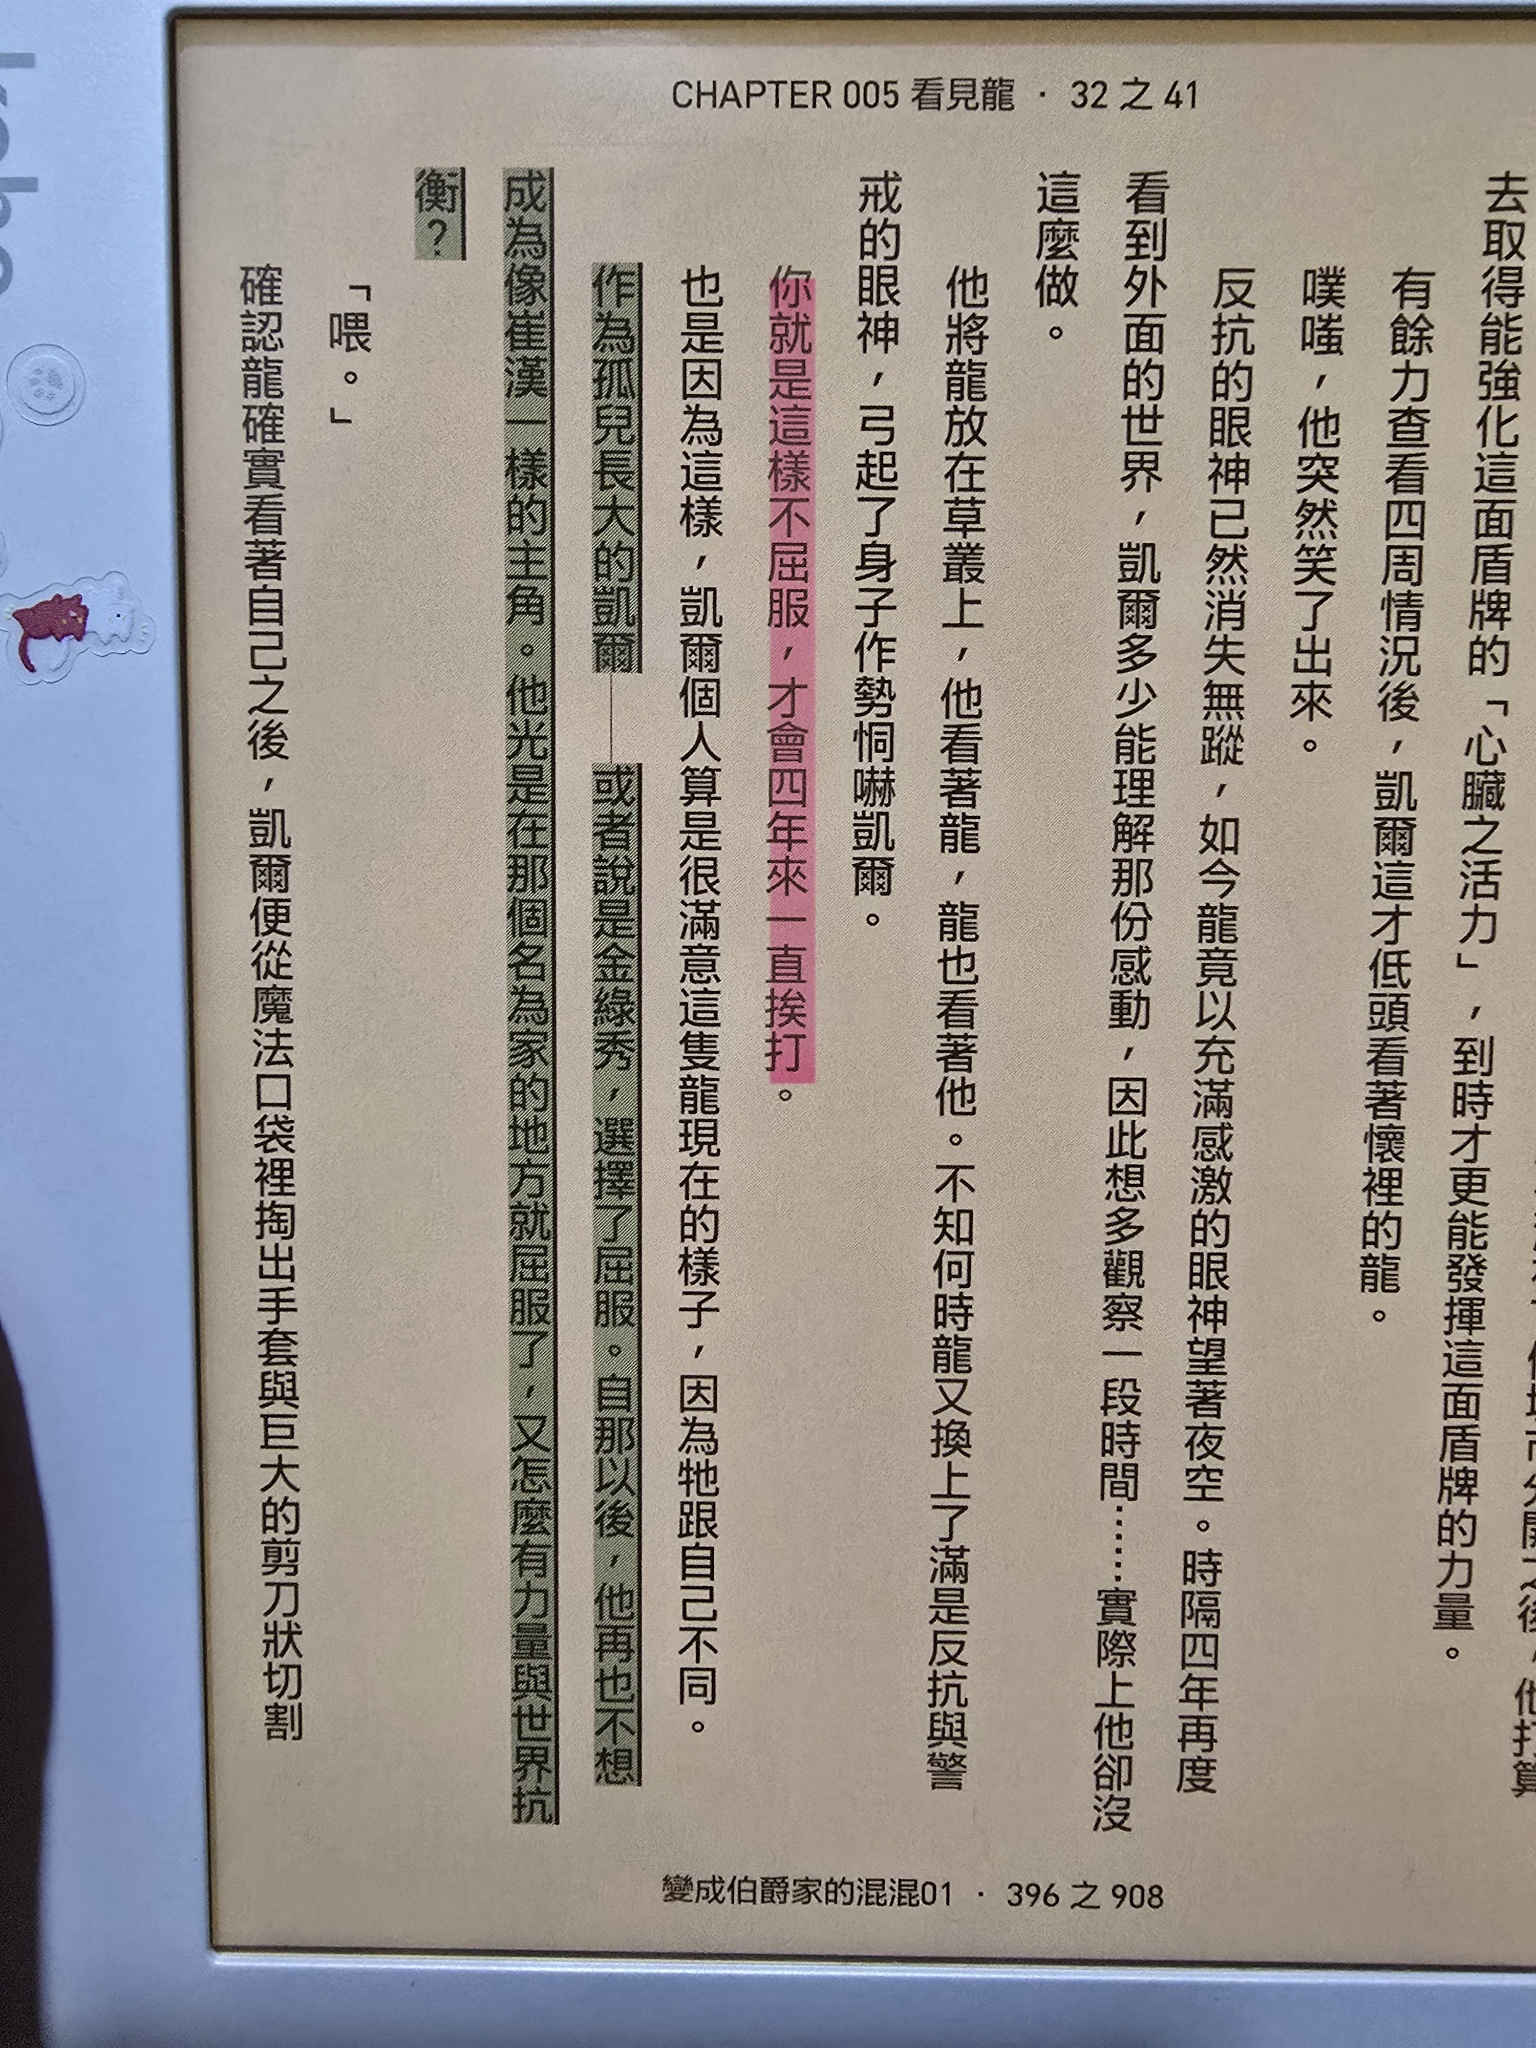 CHAPTER 005 看見龍 · 32 之 41
去取得能強化這面盾牌的「心臟之活力」，到時才更能發揮這面盾牌的力量。
有餘力查看四周情況後，凱爾這才低頭看著懷裡的龍。
噗嗤，他突然笑了出來。
反抗的眼神已然消失無蹤，如今龍竟以充滿感激的眼神望著夜空。時隔四年再度
看到外面的世界，凱爾多少能理解那份感動，因此想多觀察一段時間……實際上他卻沒
這麼做。
他將龍放在草叢上，他看著龍，龍也看著他。不知何時龍又換上了滿是反抗與警
戒的眼神，弓起了身子作勢恫嚇凱爾。
你就是這樣不屈服，才會四年來一直挨打。
也是因為這樣，凱爾個人算是很滿意這隻龍現在的樣子，因為牠跟自己不同。
作為孤兒長大的凱爾——或者說是金綠秀，選擇了屈服。自那以後，他再也不想
成為像崔漢一樣的主角。他光是在那個名為家的地方就屈服了，又怎麼有力量與世界抗
衡？
「喂。」
確認龍確實看著自己之後，凱爾便從魔法口袋裡掏出手套與巨大的剪刀狀切割
變成伯爵家的混混01 · 396 之 908